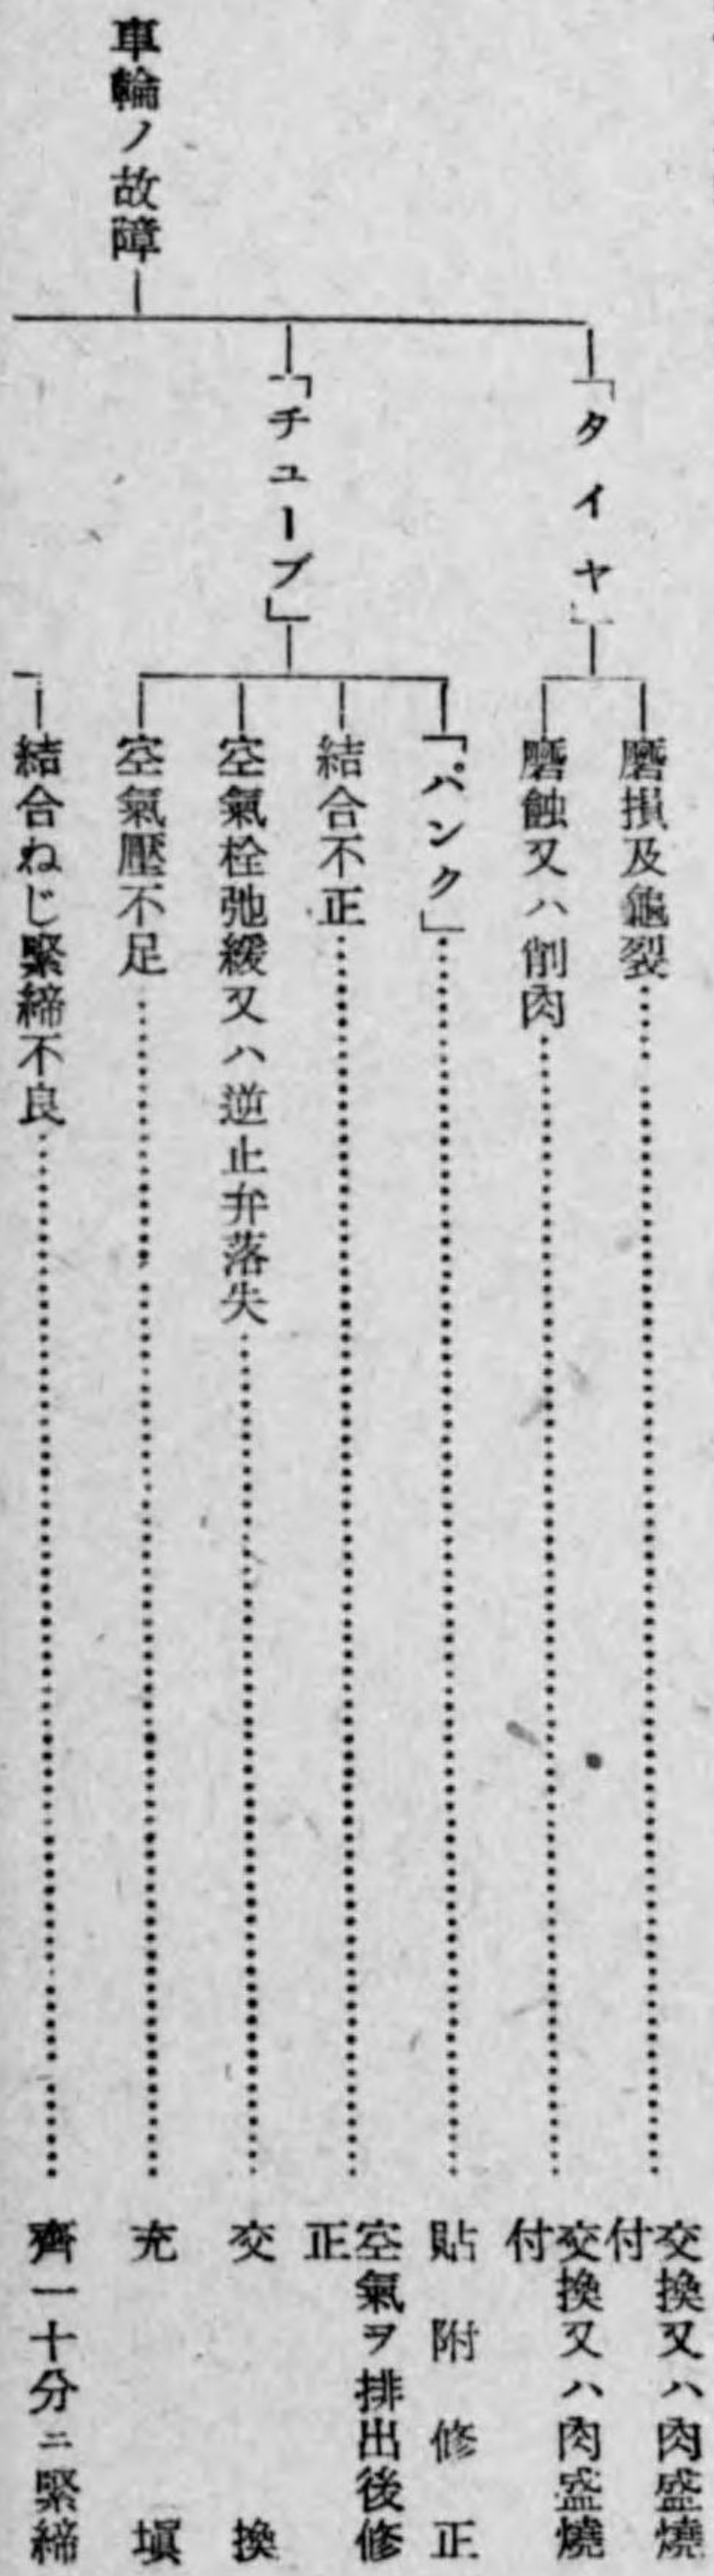 車輪ノ故障
「タイヤ」
磨損及龜裂…………交換又ハ肉盛燒付
磨蝕又ハ削肉…………交換又ハ肉盛燒付
「チューブ」
「パンク」…………貼附修正
結合不正…………空氣ヲ排出後修正
空氣栓弛緩又ハ逆止弁落失…………交換
空氣壓不足…………充塡
結合ねじ緊締不良…………齊一十分ニ緊締